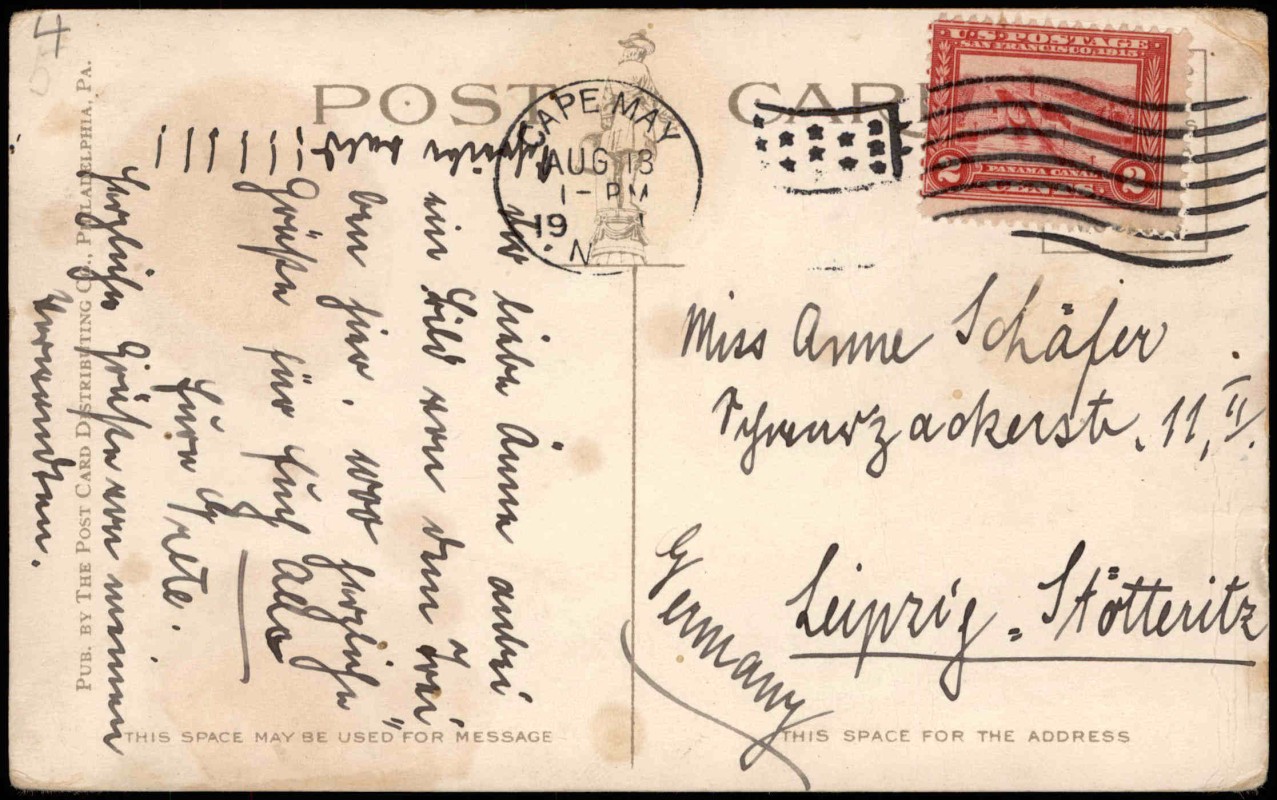 POST CARD
U.S. POSTAGE
SAN FRANCISCO, 1915
PANAMA CANAL
2 CENTS 2
CAPE MAY
AUG 13
1 - PM
19
N.
4
Miss Anne Schäfer
Schwarzackerstr. 11, II.
Leipzig = Stötteritz
Germany
liebe Änne anbei
ein Bild von dem
bin hier. 1000 herzliche
Grüße für Euch
Eure Grete.
Herzliche Grüße von meinen
Verwandten.
Schreibe bald !!!!!!!
PUB. BY THE POST CARD DISTRIBUTING CO., PHILADELPHIA, PA.
THIS SPACE MAY BE USED FOR MESSAGE
THIS SPACE FOR THE ADDRESS